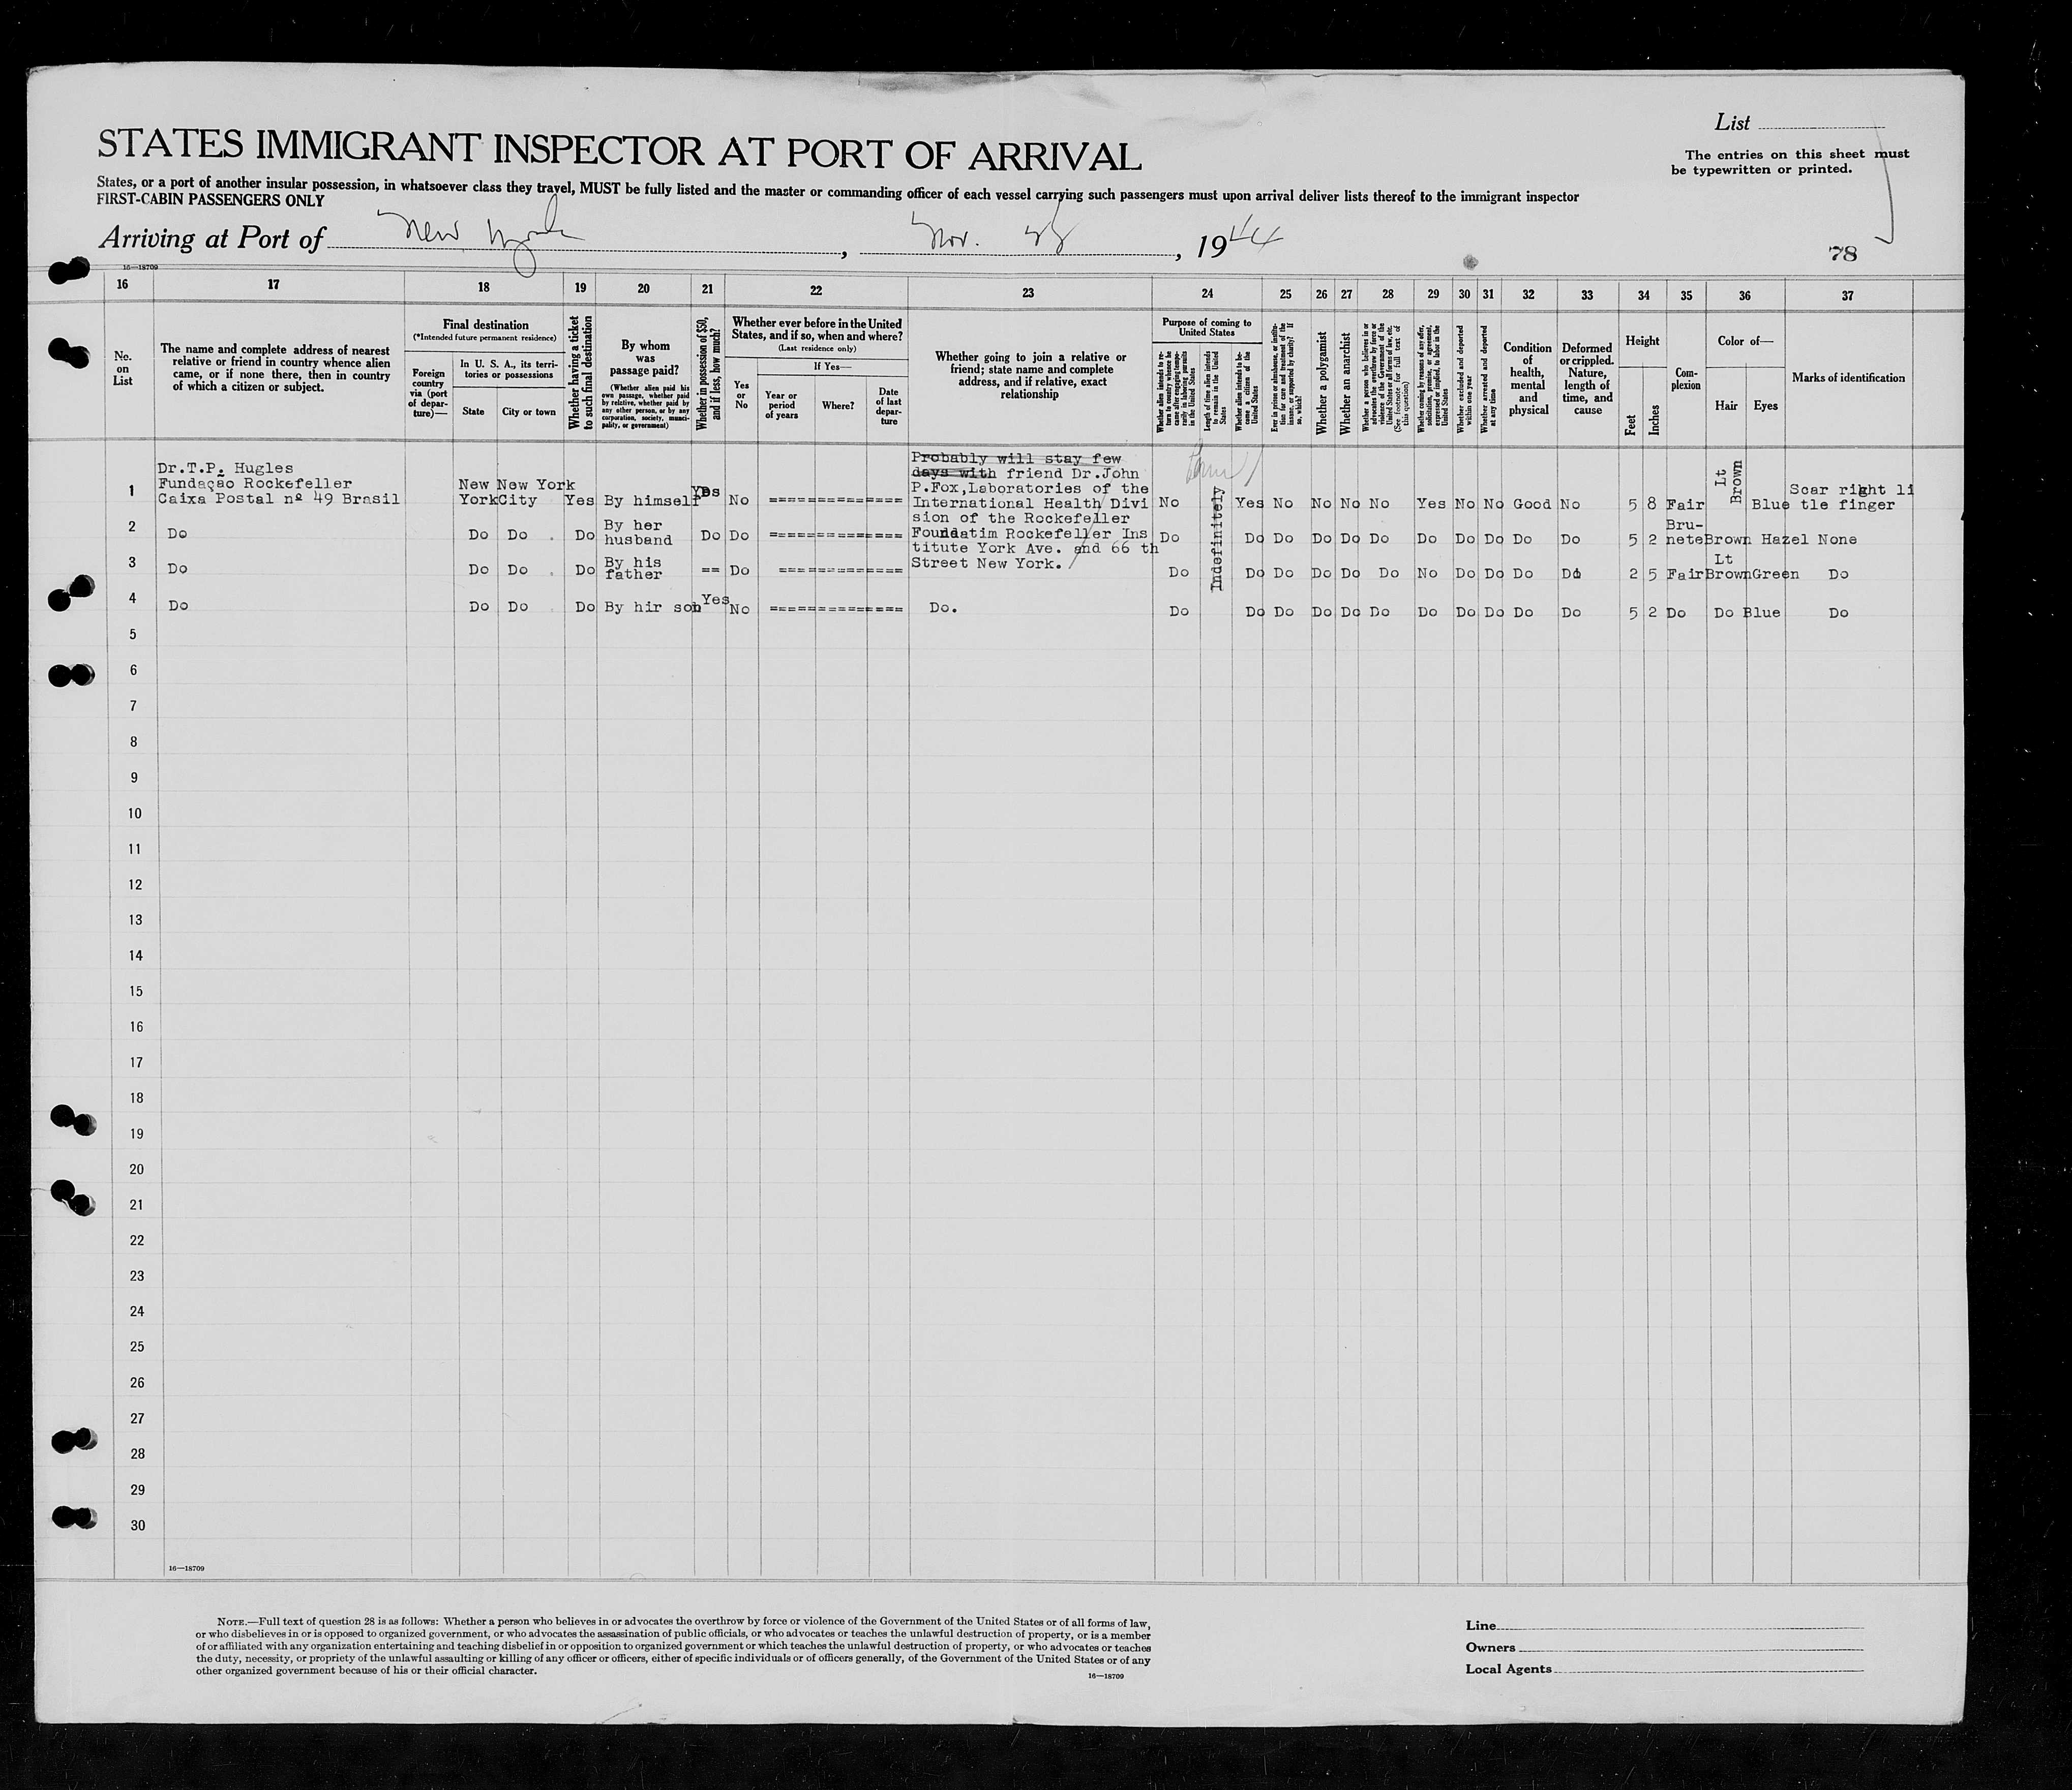 List
The entries on this sheet must
be typewritten or printed.
STATES IMMIGRANT INSPECTOR AT PORT OF ARRIVAL
States, or a port of another insular possession, in whatsoever class they travel, MUST be fully listed and the master or commanding officer of each vessel carrying such passengers must upon arrival deliver lists thereof to the immigrant inspector
FIRST-CABIN PASSENGERS ONLY
Arriving at Port of New York, Nov. , 1944
78
16—18709
16 17 18 19 20 21 22 23 24 25 26 27 28 29 30 31 32 33 34 35 36 37
No.
on
List
The name and complete address of nearest
relative or friend in country whence alien
came, or if none there, then in country
of which a citizen or subject.
Final destination
(*Intended future permanent residence)
Foreign
country
via (port
of depar-
ture)—
In U. S. A., its terri-
tories or possessions
State
City or town
Whether having a ticket
to such final destination
By whom
was
passage paid?
(Whether alien paid his
own passage, whether paid
by relative, whether paid by
any other person, or by any
corporation, society, munici-
pality, or government)
Whether in possession of $50,
and if less, how much?
Whether ever before in the United
States, and if so, when and where?
(Last residence only)
Yes
or
No
If Yes—
Year or
period
of years
Where?
Date
of last
depar-
ture
Whether going to join a relative or
friend; state name and complete
address, and if relative, exact
relationship
Purpose of coming to
United States
Whether alien intends to re-
turn to country whence he
came after engaging tempo-
rarily in laboring pursuits
in the United States
Length of time alien intends
to remain in the United
States
Whether alien intends to be-
come a citizen of the
United States
Ever in prison or almshouse, or institu-
tion for care and treatment of the
insane, or supported by charity? If
so, which?
Whether a polygamist
Whether an anarchist
Whether a person who believes in or
advocates the overthrow by force or
violence of the Government of the
United States or all forms of law, etc.
(See footnote for full text of
this question)
Whether coming by reasons of any offer,
solicitation, promise, or agreement,
expressed or implied, to labor in the
United States
Whether excluded and deported
within one year
Whether arrested and deported
at any time
Condition
of
health,
mental
and
physical
Deformed
or crippled.
Nature,
length of
time, and
cause
Height
Feet
Inches
Com-
plexion
Color of—
Hair
Eyes
Marks of identification
1
Dr.T.P. Hugles
Fundaçao Rockefeller
Caixa Postal nº 49 Brasil
New York
New York City
Yes
By himself
Yes
No
=============
Probably will stay few
days with friend Dr.John
P.Fox,Laboratories of the
International Health Divi
sion of the Rockefeller
Foundatim Rockefeller Ins
titute York Ave. and 66 th
Street New York.
No
Indefinitely
Yes No No No No Yes No No Good No 5 8 Fair
Lt
Brown
Blue
Scar right li
tle finger
2
Do Do Do . Do
By her
husband
Do Do =============
Do Do Do Do Do Do Do Do Do Do Do 5 2
Bru-
nete
Brown Hazel None
3
Do Do Do . Do
By his
father
== Do ============
Do Do Do Do Do Do No Do Do Do Do 2 5 Fair
Lt
Brown
Green Do
4
Do Do Do . Do By hir son Yes No ============= Do.
Do Do Do Do Do Do Do Do Do Do Do 5 2 Do Do Blue Do
5
6
7
8
9
10
11
12
13
14
15
16
17
18
19
20
21
22
23
24
25
26
27
28
29
30
16—18709
NOTE.—Full text of question 28 is as follows: Whether a person who believes in or advocates the overthrow by force or violence of the Government of the United States or of all forms of law,
or who disbelieves in or is opposed to organized government, or who advocates the assassination of public officials, or who advocates or teaches the unlawful destruction of property, or is a member
of or affiliated with any organization entertaining and teaching disbelief in or opposition to organized government or which teaches the unlawful destruction of property, or who advocates or teaches
the duty, necessity, or propriety of the unlawful assaulting or killing of any officer or officers, either of specific individuals or of officers generally, of the Government of the United States or of any
other organized government because of his or their official character.
16—18709
Line
Owners
Local Agents